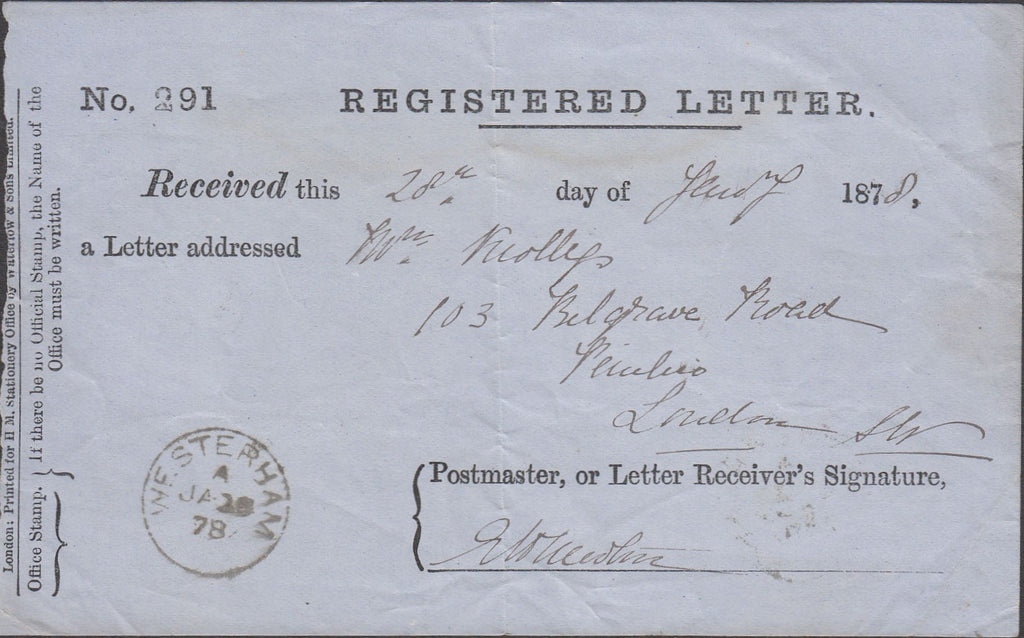 No. 291 REGISTERED LETTER.
Received this 28th day of Jany 1878,
a Letter addressed Mrs Knollys
103 Belgrave Road
Pimlico
London SW
Postmaster, or Letter Receiver's Signature,
WESTERHAM
A
JA 28
78
Office Stamp. { If there be no Official Stamp, the Name of the
Office must be written.
London: Printed for H M. Stationery Office by Waterlow & Sons Limited.